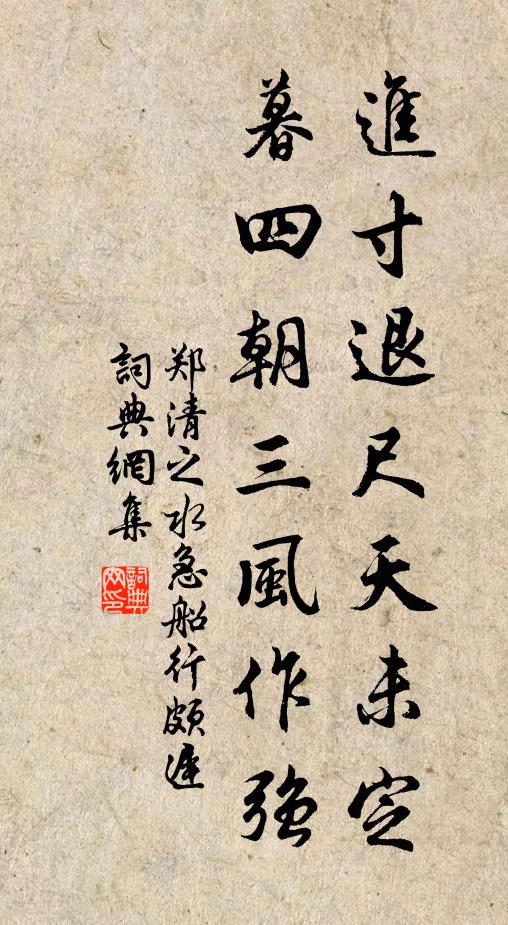 進寸退尺天未定
暮四朝三風作強
郑清之水急船行頗遲
詞典網集
詞典网印